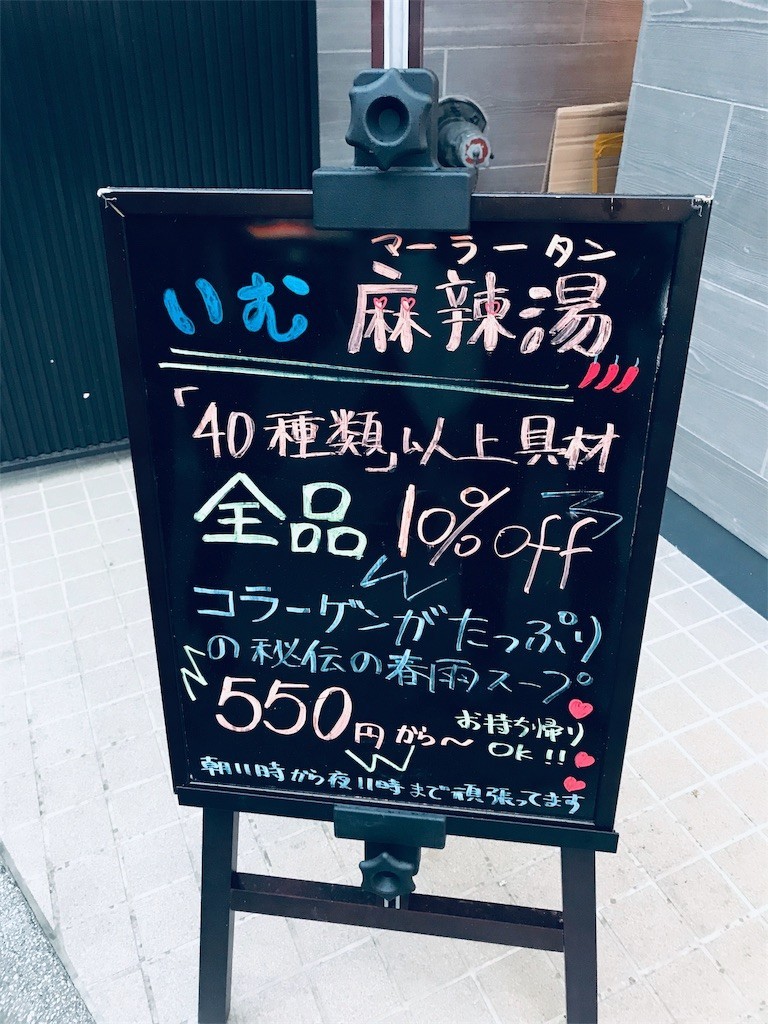 マーラータン
いむ 麻辣湯
「40種類」以上具材
全品 10% off
コラーゲンがたっぷり
の秘伝の春雨スープ
550円から〜 お持ち帰り
OK!!
朝11時から夜11時まで頑張ってます